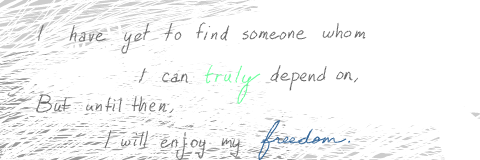 I have yet to find someone whom
I can truly depend on,
But until then,
I will enjoy my freedom.